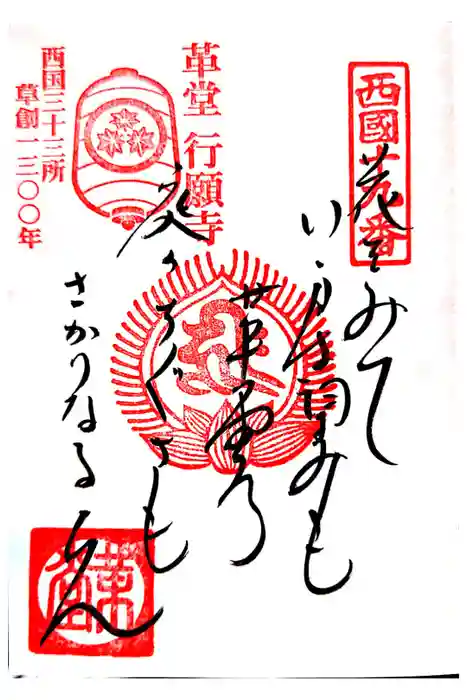 西國十九番
花をみて
いまは望みも
革堂の
庭のちぐさも
さかりなるらん
革堂 行願寺
西国三十三所
草創一三〇〇年
革堂